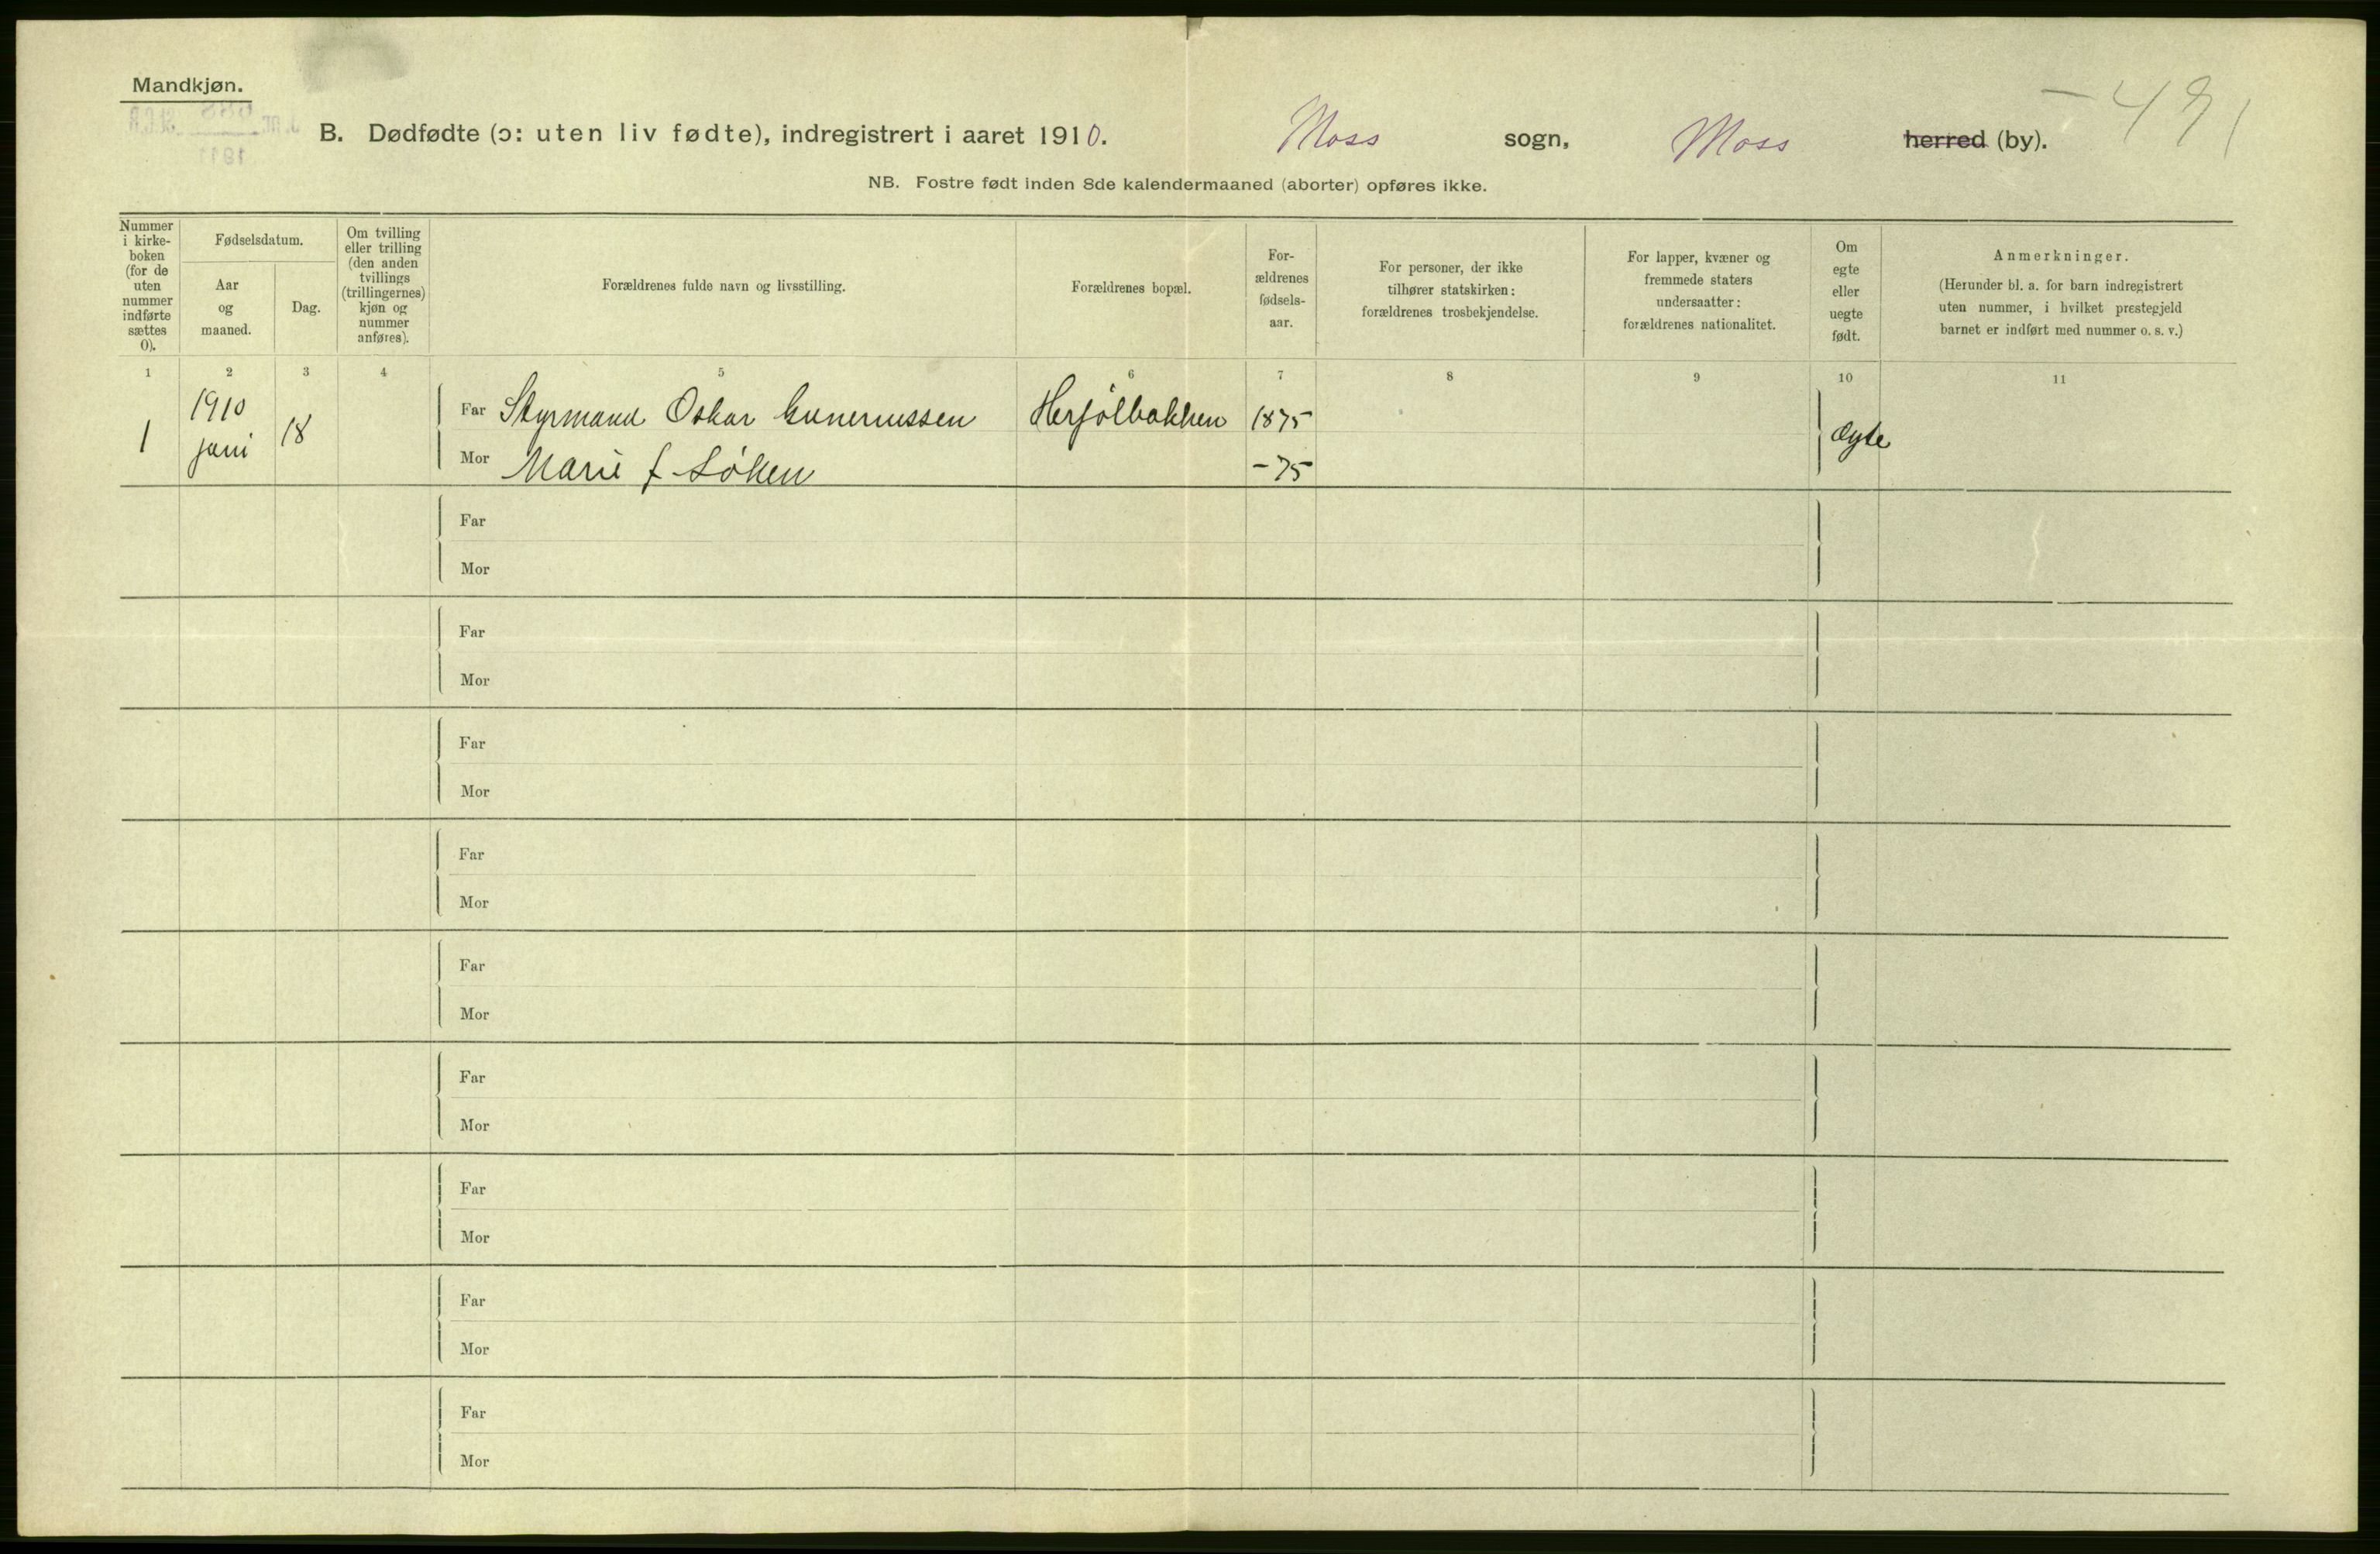 Mandkjøn.
B. Dødfødte (ɔ: uten liv fødte), indregistrert i aaret 1910. Moss sogn, Moss herred (by).
NB. Fostre født inden 8de kalendermaaned (aborter) opføres ikke.
Nummer i kirke-boken (for de uten nummer indførte sættes 0).
Fødselsdatum.
Aar og maaned.
Dag.
Om tvilling eller trilling (den anden tvillings (trillingernes) kjøn og nummer anføres).
Forældrenes fulde navn og livsstilling.
Forældrenes bopæl.
For-ældrenes fødsels-aar.
For personer, der ikke tilhører statskirken: forældrenes trosbekjendelse.
For lapper, kvæner og fremmede staters undersaatter: forældrenes nationalitet.
Om egte eller uegte født.
Anmerkninger.
(Herunder bl. a. for barn indregistrert uten nummer, i hvilket prestegjeld barnet er indført med nummer o. s. v.)
1 2 3 4 5 6 7 8 9 10 11
1 1910 juni 18
Far Styrmand Oskar Gunerussen 1875 ægte
Mor Marie f. -75
Far
Mor
Far
Mor
Far
Mor
Far
Mor
Far
Mor
Far
Mor
Far
Mor
Far
Mor
Far
Mor